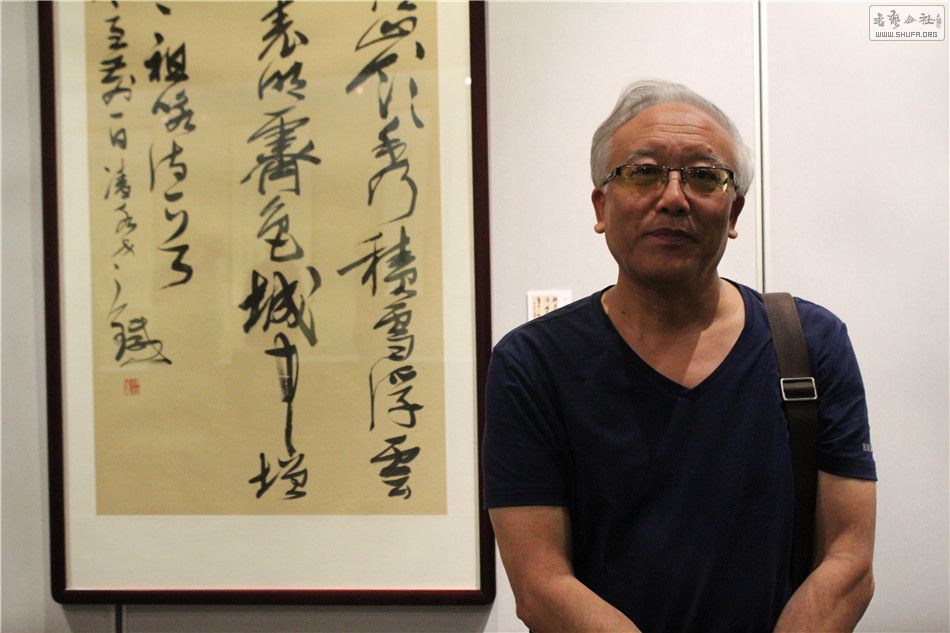 嶺秀積雪浮雲
表明霽色城中增
祖詠詩一首
一日
書藝公社
WWW.SHUFA.ORG